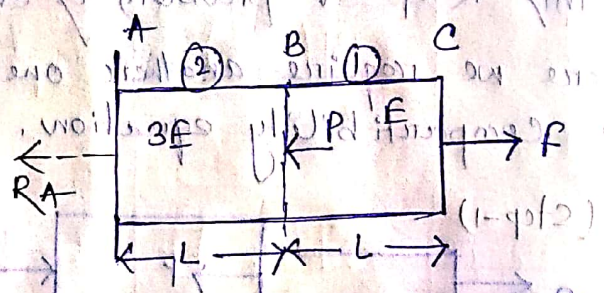 A B C
② ①
3E P E F
RA
L L